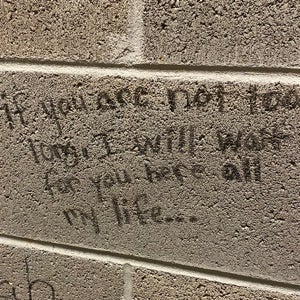 if you are not too
long, I will wait
for you here all
my life...